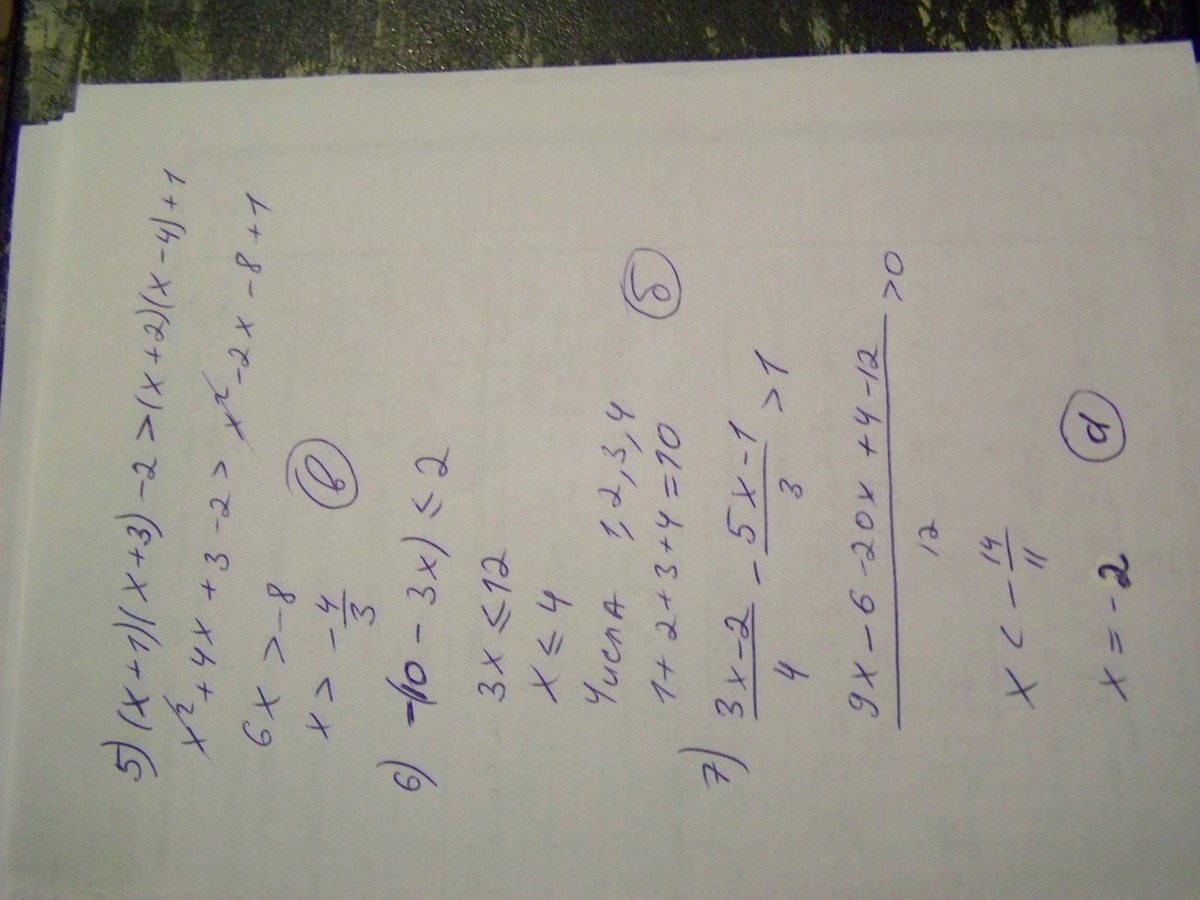 5) (x+1)(x+3)-2>(x+2)(x-4)+1
x²+4x+3-2> x²-2x-8+1
6x>-8
x> -4/3 в
6) -(10-3x)≤2
3x≤12
x≤4
Числа 1,2,3,4
1+2+3+4=10 б
7) (3x-2)/4 - (5x-1)/3 >1
(9x-6-20x+4-12)/12 >0
x< -14/11
x=-2 а